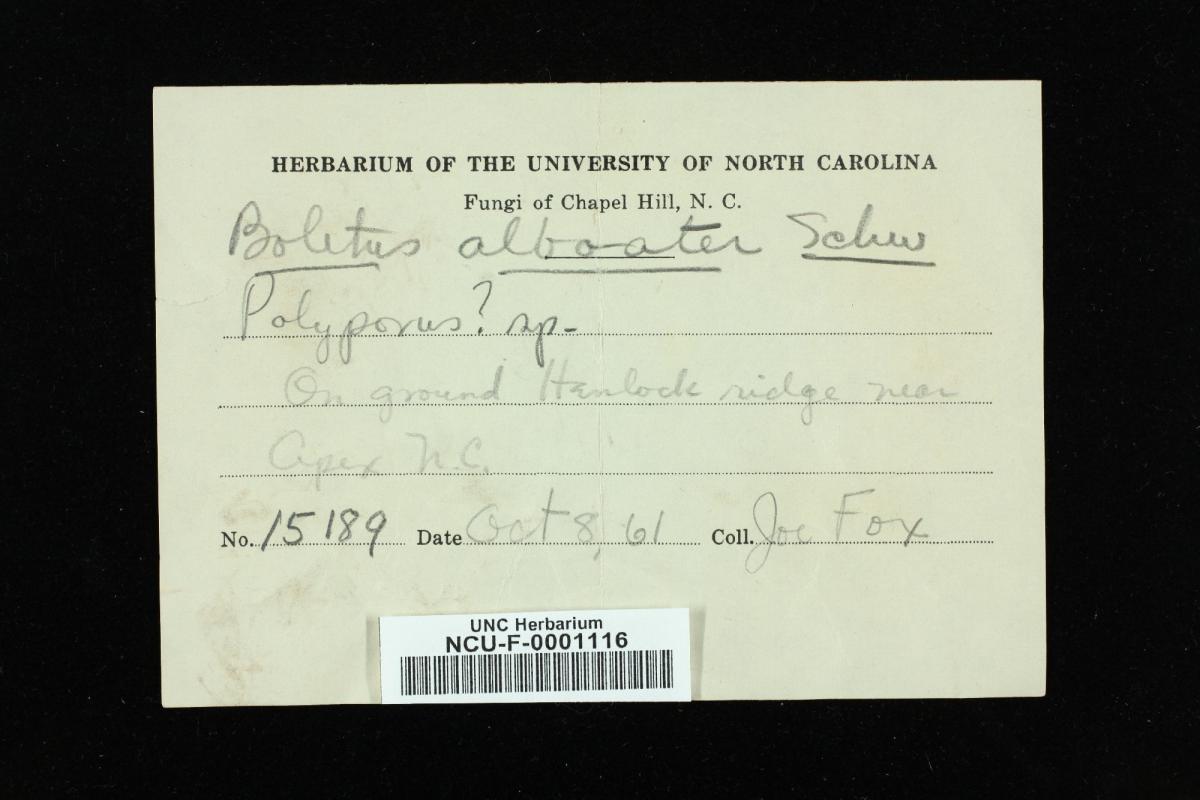 HERBARIUM OF THE UNIVERSITY OF NORTH CAROLINA
Fungi of Chapel Hill, N. C.
Boletus albo-ater Schw
Polyporus? sp-
On ground Hemlock ridge near
Apex N.C.
No. 15189 Date Oct 8, 61 Coll. Joe Fox
UNC Herbarium
NCU-F-0001116